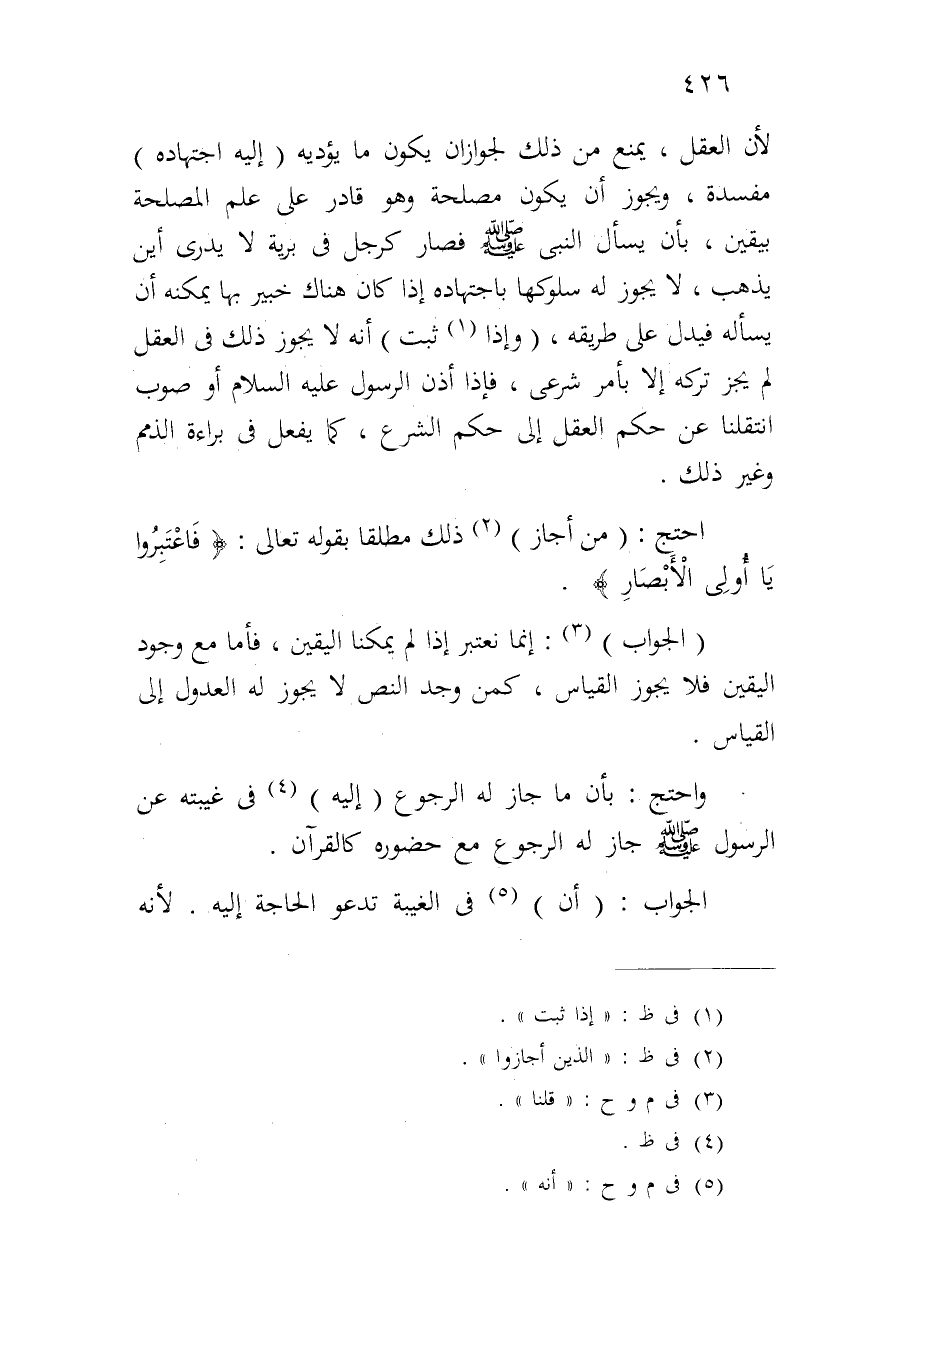 ٤٢٦
لأن العقل ، يمنع من ذلك لجوازان يكون ما يؤديه ( إليه اجتهاده )
مفسدة ، ويجوز أن يكون مصلحة وهو قادر على علم المصلحة
بيقين ، بأن يسأل النبى ﷺ فصار كرجل فى برية لا يدرى أين
يذهب ، لا يجوز له سلوكها باجتهاده إذا كان هناك خبير بها يمكنه أن
يسأله فيدل على طريقه ، ( وإذا (١) ثبت ) أنه لا يجوز ذلك فى العقل
لم يجز تركه إلا بأمر شرعى ، فإذا أذن الرسول عليه السلام أو صوب
انتقلنا عن حكم العقل إلى حكم الشرع ، كما يفعل فى براءة الذمم
وغير ذلك .
احتج : ( من أجاز ) (٢) ذلك مطلقا بقوله تعالى : ﴿ فَاعْتَبِرُوا
يَا أُولِى الْأَبْصَارِ ﴾ .
( الجواب ) (٣) : إنما نعتبر إذا لم يمكنا اليقين ، فأما مع وجود
اليقين فلا يجوز القياس ، كمن وجد النص لا يجوز له العدول إلى
القياس .
واحتج : بأن ما جاز له الرجوع ( إليه ) (٤) فى غيبته عن
الرسول ﷺ جاز له الرجوع مع حضوره كالقرآن .
الجواب : ( أن ) (٥) فى الغيبة تدعو الحاجة إليه . لأنه
(١) فى ظ : « إذا ثبت » .
(٢) فى ظ : « الذين أجازوا » .
(٣) فى م و ح : « قلنا » .
(٤) فى ظ .
(٥) فى م و ح : « أنه » .